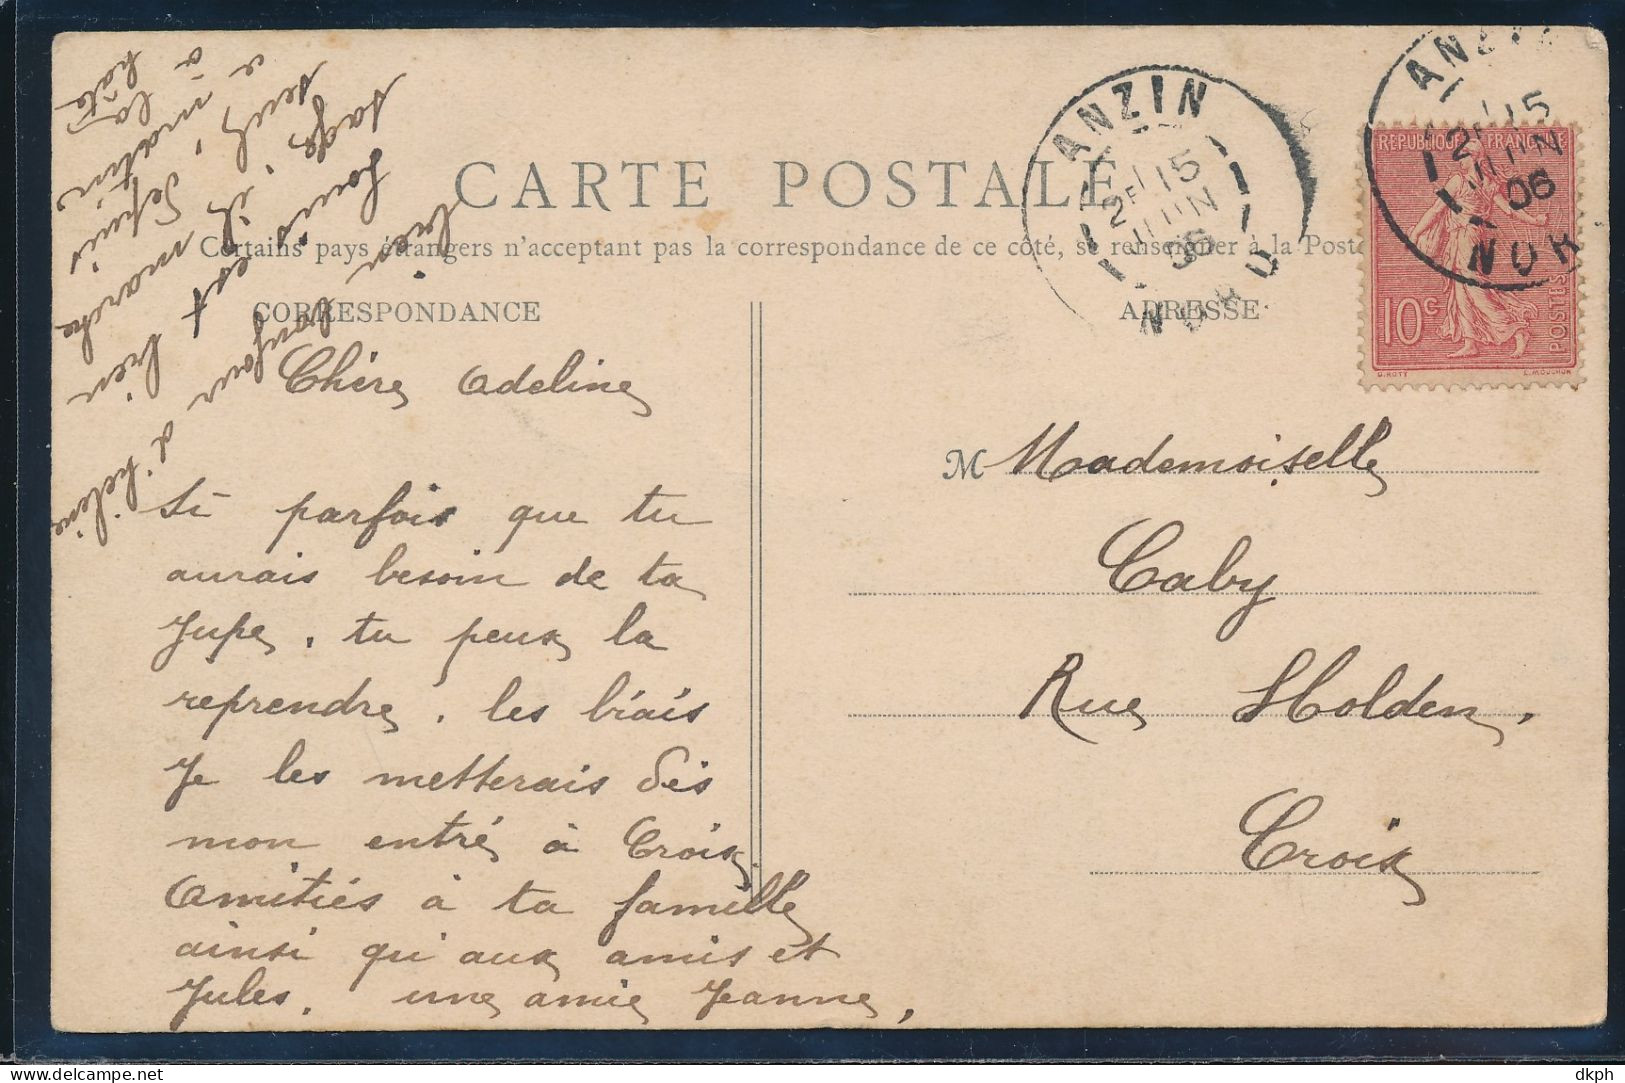 CARTE POSTALE
Certains pays étrangers n'acceptent pas la correspondance de ce côté, se renseigner à la Poste
CORRESPONDANCE
ADRESSE
ANZIN
15
JUIN
06
NORD
ANZIN
15
JUIN
06
NOR
REPUBLIQUE FRANÇAISE
10c
POSTES
O. ROTY
E. MOUCHON
Chère Adeline
Si parfois que tu
aurais besoin de ta
Jupe, tu peux la
reprendre, les biais
Je les metterais dès
mon entré à Croix
Amitiés à ta famille
ainsi qu'aux amis et
Jules, une amie Jeanne,
bien bonjour d'hélène
Louis est bien
sage, il marche
seul, depuis
ce matin
à la
hâte
M Mademoiselle
Caby
Rue Holden,
Croix
dkph